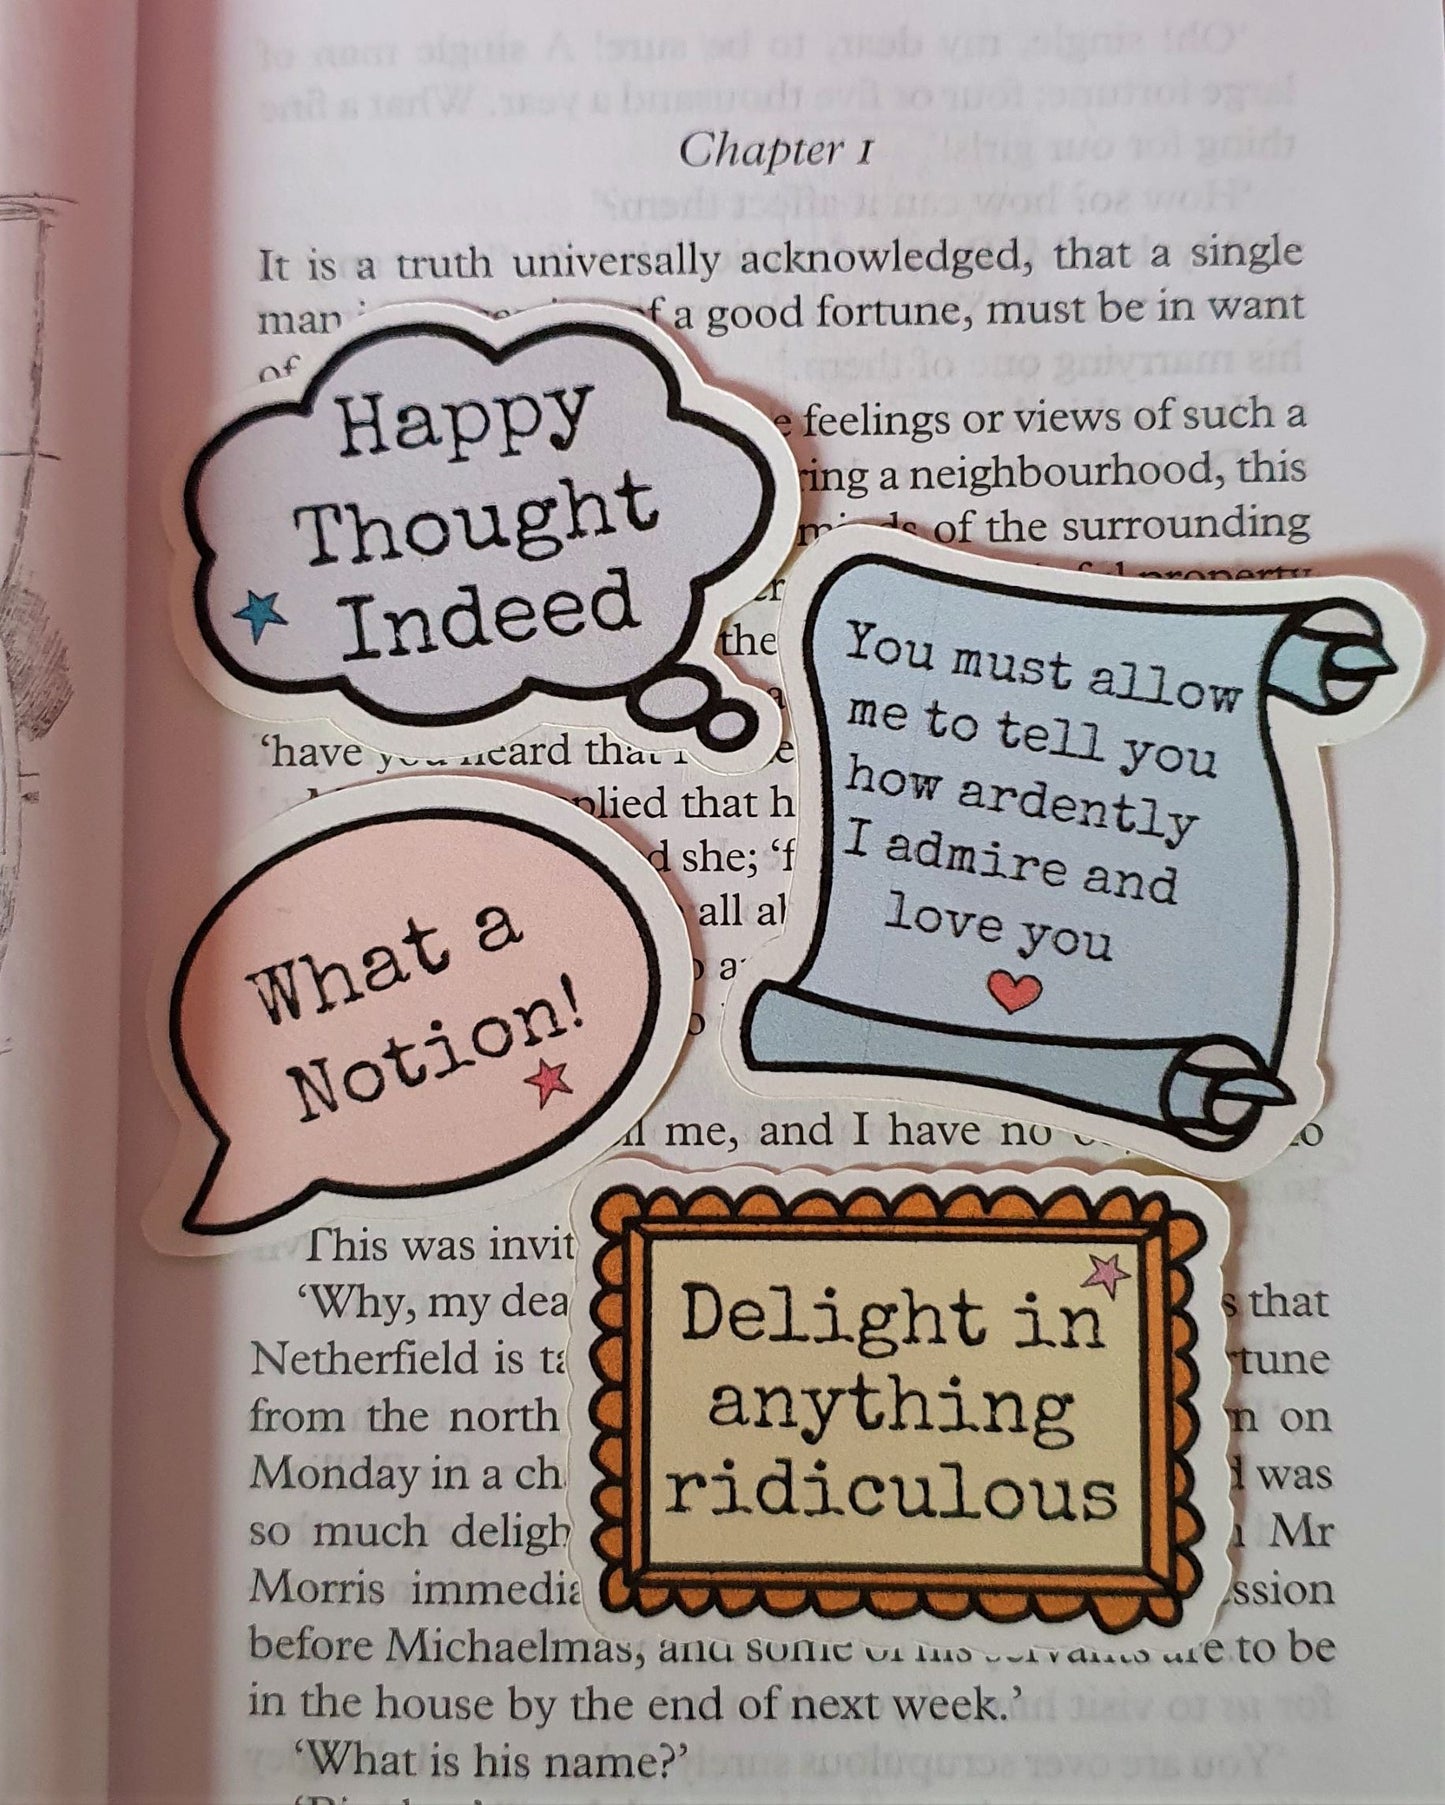 Chapter 1
It is a truth universally acknowledged, that a single
man of a good fortune, must be in want
of
feelings or views of such a
a neighbourhood, this
of the surrounding
property
the
a
Happy
Thought
Indeed
You must allow
me to tell you
how ardently
I admire and
love you
‘have you heard that
that h
she; ‘f
all
What a
Notion!
me, and I have no
This was invit
‘Why, my dea
that
Netherfield is ta
tune
from the north
on
Monday in a ch
was
so much deligh
Mr
Morris immedia
ssion
before Michaelmas, and some of his servants are to be
in the house by the end of next week.’
‘What is his name?’
Delight in
anything
ridiculous